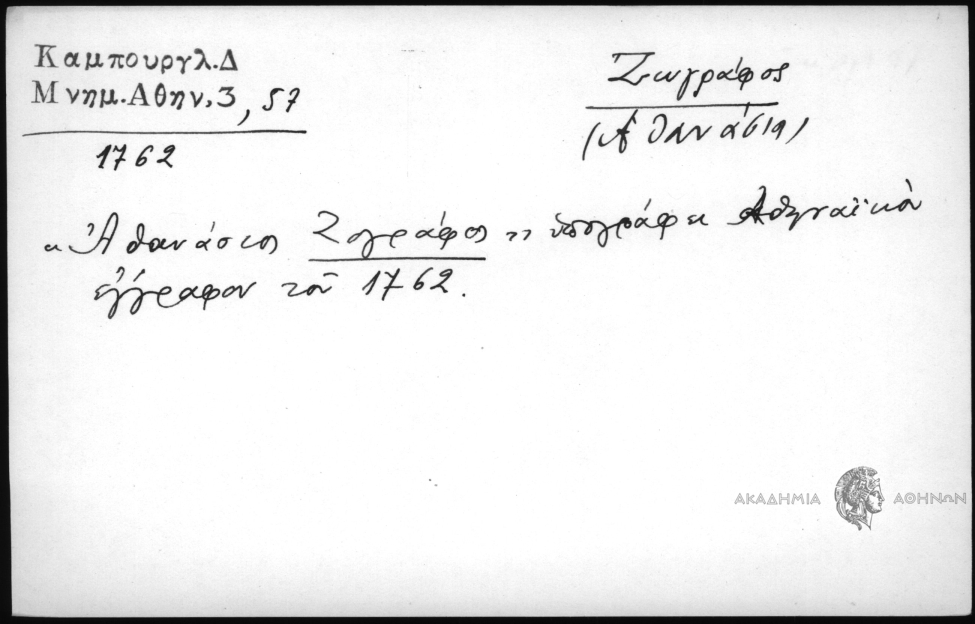 Καμπουργλ.Δ
Μνημ.Αθην.3, 57
1762
Ζωγράφος
(Ἀθανάσιος)
" Ἀθανάσιος Ζογράφος " ὑπογράφει Ἀθηναϊκὸν
ἔγγραφον τοῦ 1762.
ΑΚΑΔΗΜΙΑ ΑΘΗΝΩΝ